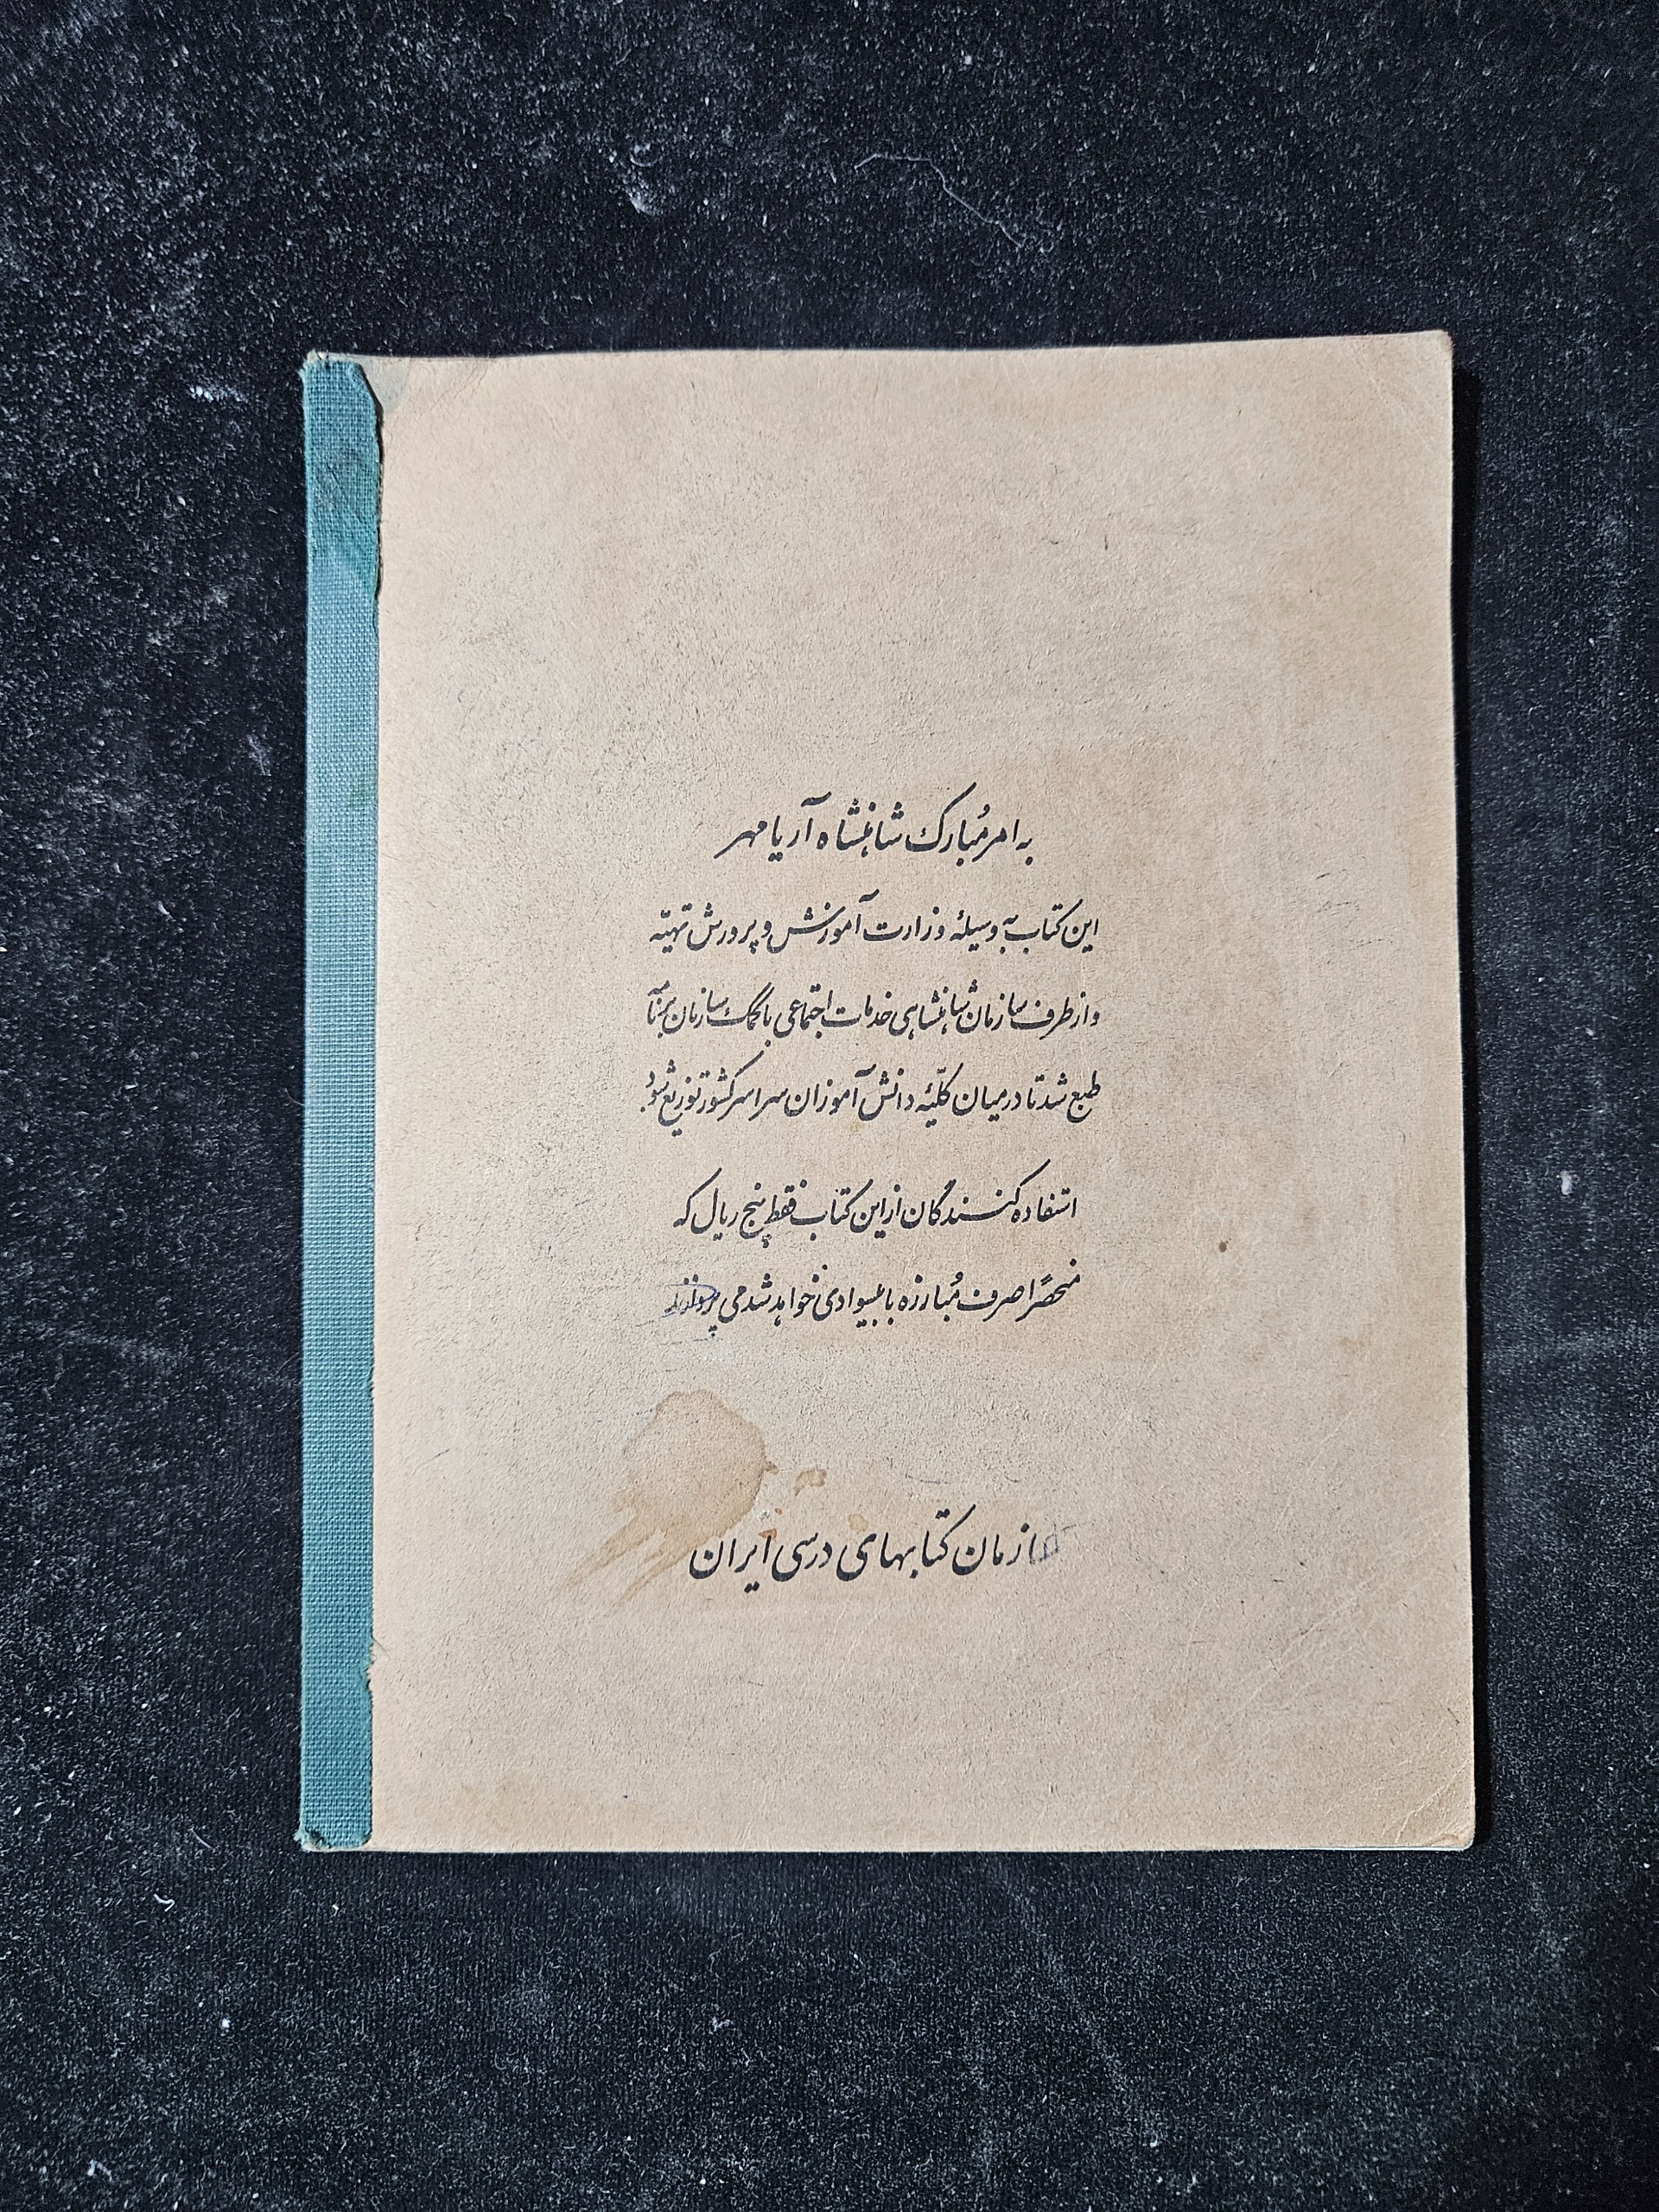 به امر مُبارک شاهنشاه آریامهر
این کتاب به وسیلهٔ وزارت آموزش و پرورش تهیّه
و از طرف سازمان شاهنشاهی خدمات اجتماعی با کمک سازمان برنامه
طبع شد تا در میان کلّیهٔ دانش آموزان سراسر کشور توزیع شود.
استفاده کنندگان از این کتاب فقط پنج ریال که
منحصراً صرف مُبارزه با بیسوادی خواهد شد می پردازند
سازمان کتابهای درسی ایران